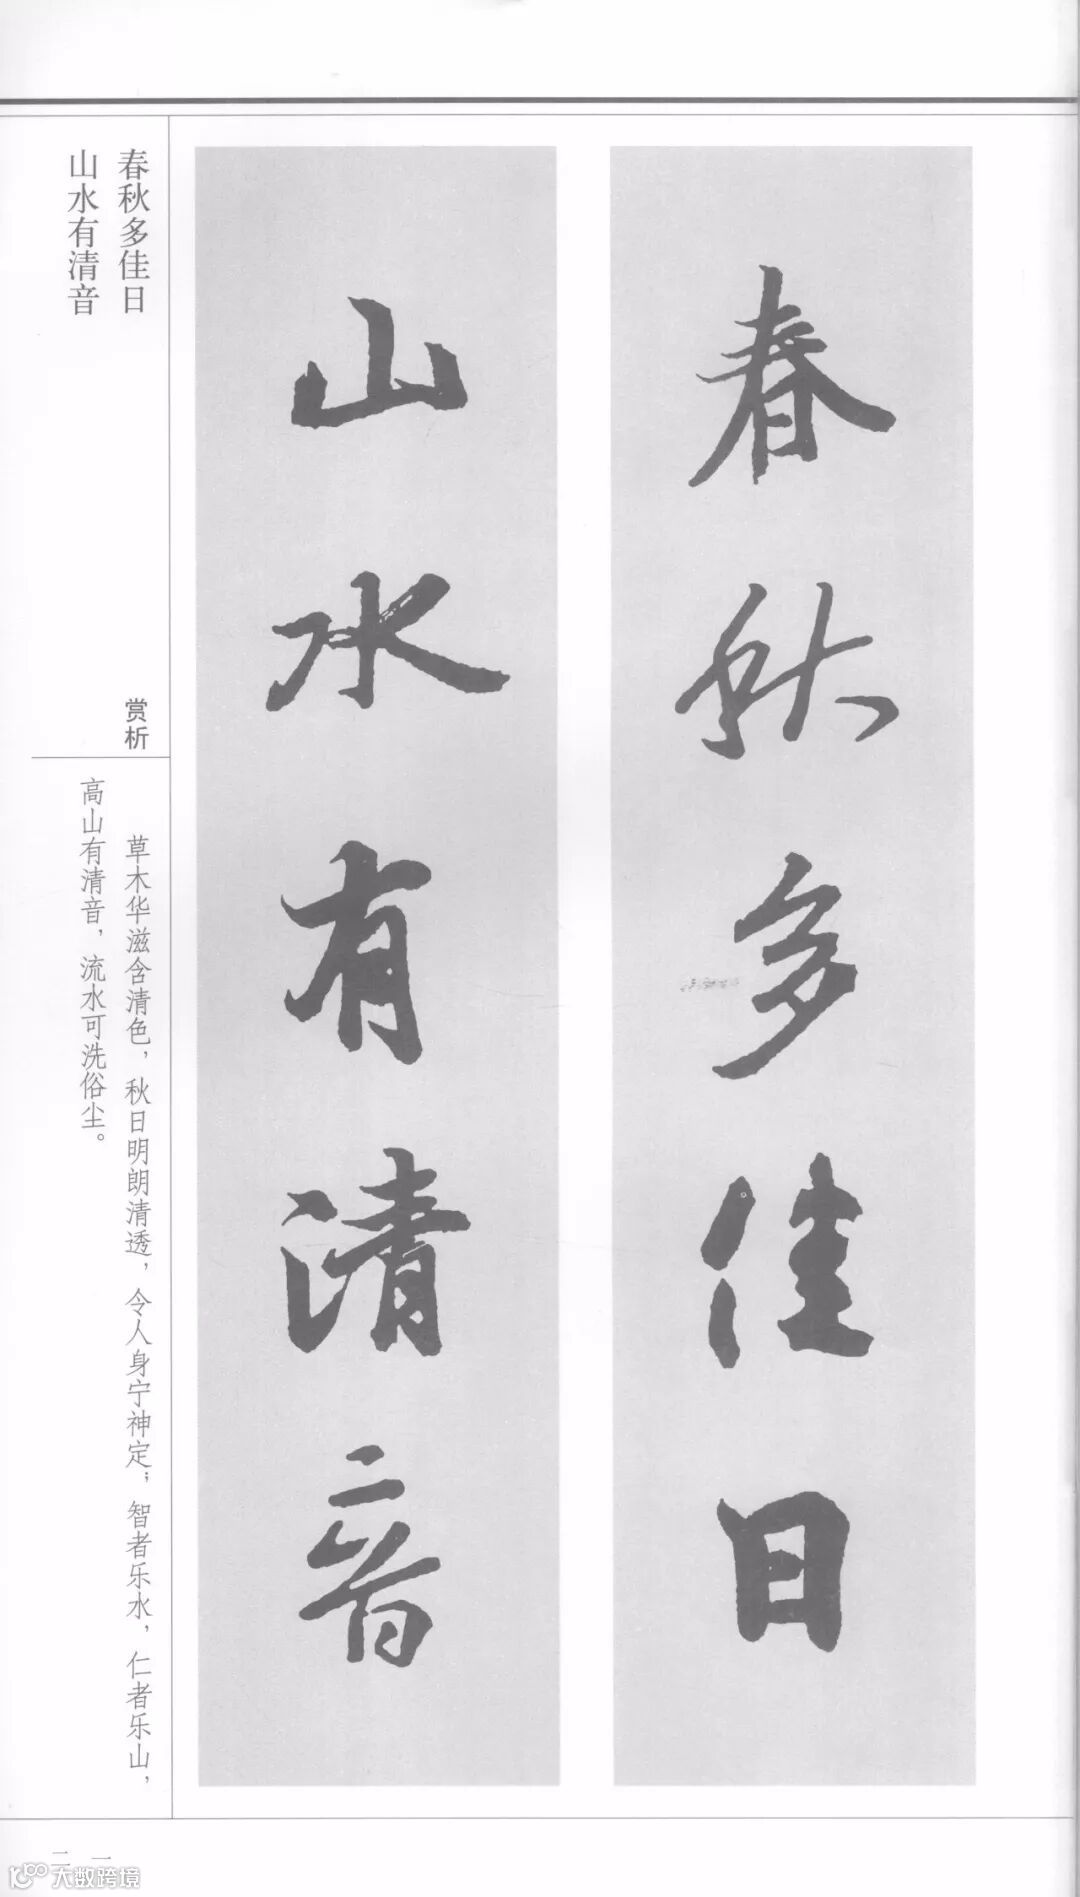 春秋多佳日
山水有清音
春秋多佳日
山水有清音
赏析
草木华滋含清色，秋日明朗清透，令人身宁神定；智者乐水，仁者乐山，
高山有清音，流水可洗俗尘。
二一
大数跨境